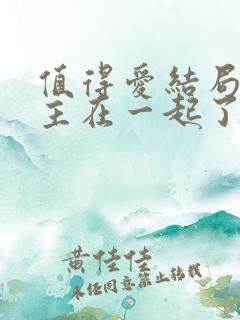 值得爱結局
主在一起了
黄佳佳
未经同意禁止转载